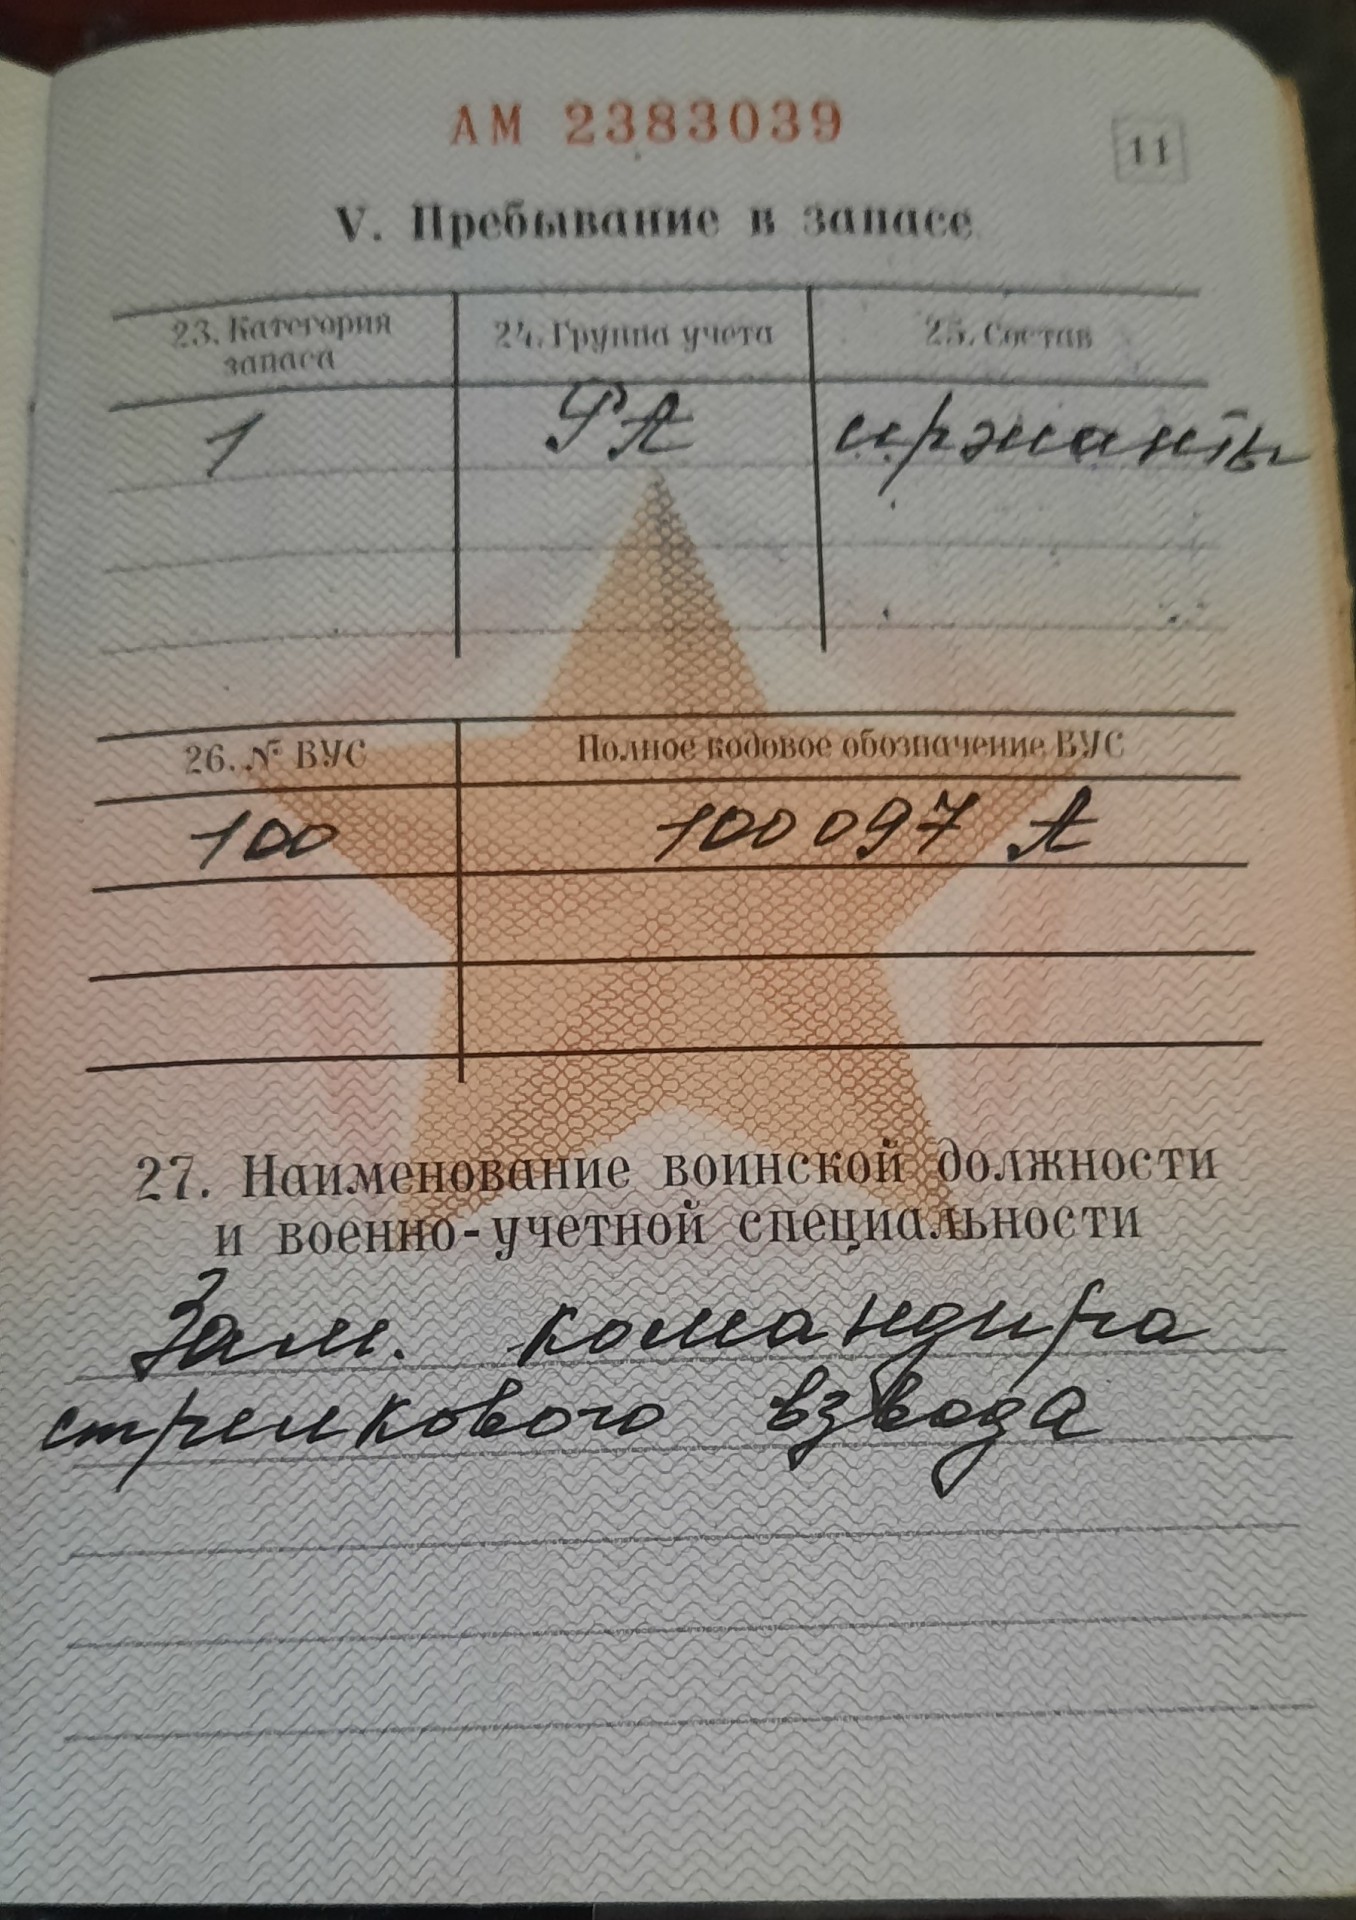 АМ 2383039
11
V. Пребывание в запасе
23. Категория запаса
24. Группа учета
25. Состав
1
РА
сержанты
26. № ВУС
Полное кодовое обозначение ВУС
100
100097 А
27. Наименование воинской должности
и военно-учетной специальности
Зам. командира
стрелкового взвода